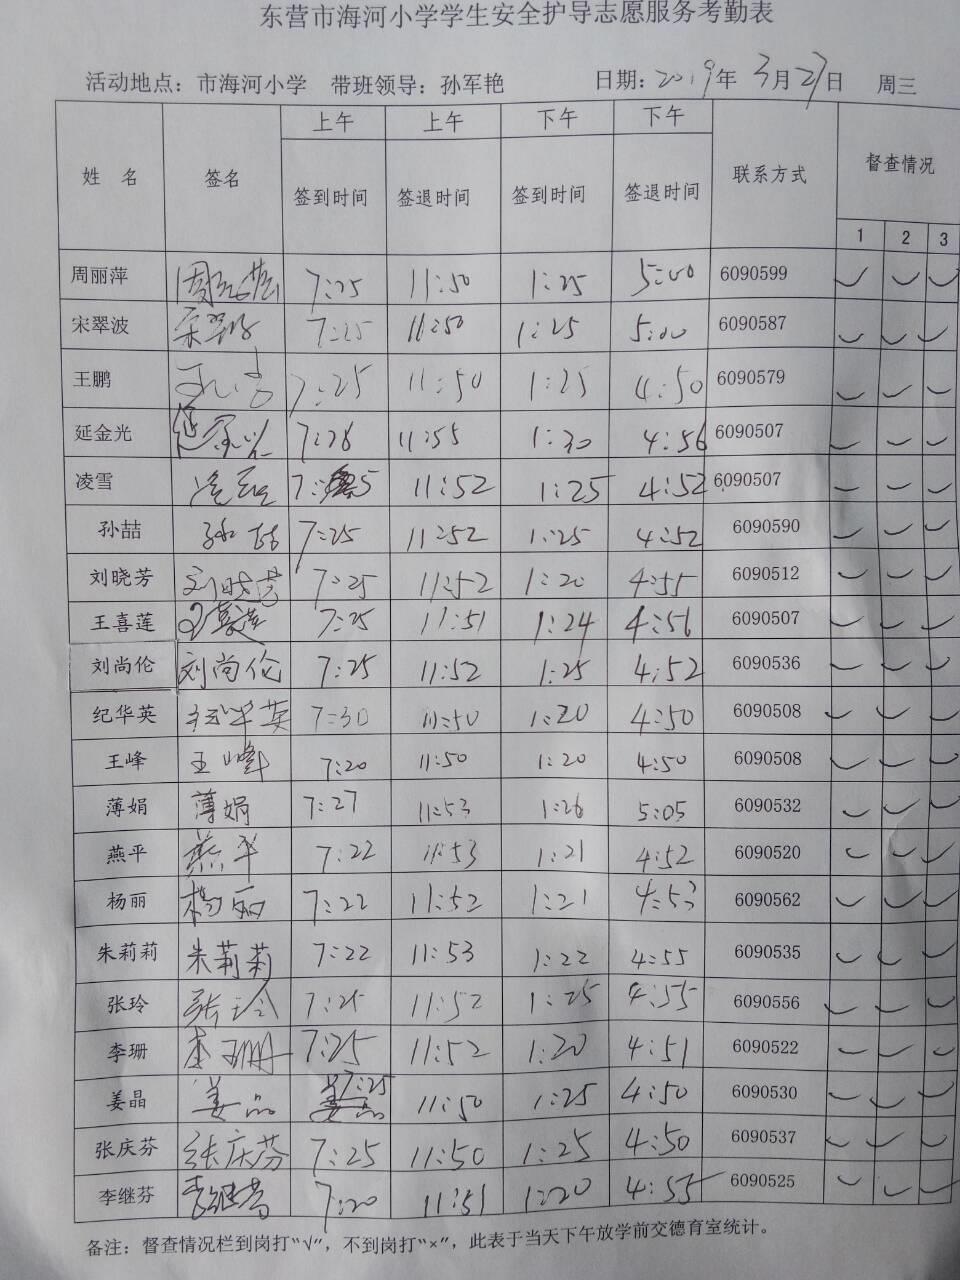 东营市海河小学学生安全护导志愿服务考勤表
活动地点：市海河小学 带班领导：孙军艳 日期：2019年3月27日 周三
姓 名 签名 上午 上午 下午 下午 联系方式 督查情况
签到时间 签退时间 签到时间 签退时间
1 2 3
周丽萍 周丽萍 7:25 11:50 1:25 5:00 6090599 ✓ ✓ ✓
宋翠波 宋翠波 7:25 11:50 1:25 5:00 6090587 ✓ ✓ ✓
王鹏 7:25 11:50 1:25 4:50 6090579 ✓ ✓ ✓
延金光 延金光 7:26 11:55 1:30 4:56 6090507 ✓ ✓ ✓
凌雪 凌雪 11:52 1:25 4:52 6090507 ✓ ✓ ✓
孙喆 孙喆 7:25 11:52 1:25 4:52 6090590 ✓ ✓ ✓
刘晓芳 刘晓芳 7:25 11:52 1:20 4:55 6090512 ✓ ✓ ✓
王喜莲 王喜莲 7:25 11:51 1:24 4:56 6090507 ✓ ✓ ✓
刘尚伦 刘尚伦 7:25 11:52 1:25 4:52 6090536 ✓ ✓ ✓
纪华英 纪华英 7:30 11:50 1:20 4:50 6090508 ✓ ✓ ✓
王峰 王峰 7:20 11:50 1:20 4:50 6090508 ✓ ✓ ✓
薄娟 薄娟 7:27 11:53 1:26 5:05 6090532 ✓ ✓ ✓
燕平 燕平 7:22 11:53 1:21 4:52 6090520 ✓ ✓ ✓
杨丽 杨丽 7:22 11:52 1:21 4:53 6090562 ✓ ✓ ✓
朱莉莉 朱莉莉 7:22 11:53 1:22 4:55 6090535 ✓ ✓ ✓
张玲 张玲 7:25 11:52 1:25 4:55 6090556 ✓ ✓ ✓
李珊 李珊 7:25 11:52 1:20 4:51 6090522 ✓ ✓ ✓
姜晶 姜晶 7:25 11:50 1:25 4:50 6090530 ✓ ✓ ✓
张庆芬 张庆芬 7:25 11:50 1:25 4:50 6090537 ✓ ✓ ✓
李继芬 李继芬 7:20 11:51 1:20 4:55 6090525 ✓ ✓ ✓
备注：督查情况栏到岗打“√”，不到岗打“×”，此表于当天下午放学前交德育室统计。